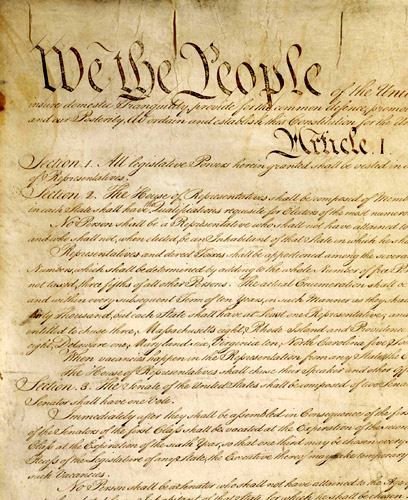 We the People of the Unit
insure domestic Tranquility, provide for the common defence, promote
and our Posterity, do ordain and establish this Constitution for the Uni
Article. I.
Section. 1. All legislative Powers herein granted shall be vested in a
of Representatives.
Section. 2. The House of Representatives shall be composed of Memb
in each State shall have the Qualifications requisite for Electors of the most numero
No Person shall be a Representative who shall not have attained to
and who shall not, when elected, be an Inhabitant of that State in which he sha
Representatives and direct Taxes shall be apportioned among the severa
Numbers, which shall be determined by adding to the whole Number of free P
not taxed, three fifths of all other Persons. The actual Enumeration shall b
and within every subsequent Term of ten Years, in such Manner as they sha
thirty Thousand, but each State shall have at Least one Representative; and
entitled to chuse three, Massachusetts eight, Rhode-Island and Providence
eight, Delaware one, Maryland six, Virginia ten, North Carolina five, So
When vacancies happen in the Representation from any State, the E
The House of Representatives shall chuse their Speaker and other Of
Section. 3. The Senate of the United States shall be composed of two Sena
Senator shall have one Vote.
Immediately after they shall be assembled in Consequence of the firs
of the Senators of the first Class shall be vacated at the Expiration of the secon
Class at the Expiration of the sixth Year, so that one third may be chosen every
Recess of the Legislature of any State, the Executive thereof may make temporary
such Vacancies.
No Person shall be a Senator who shall not have attained to the Age